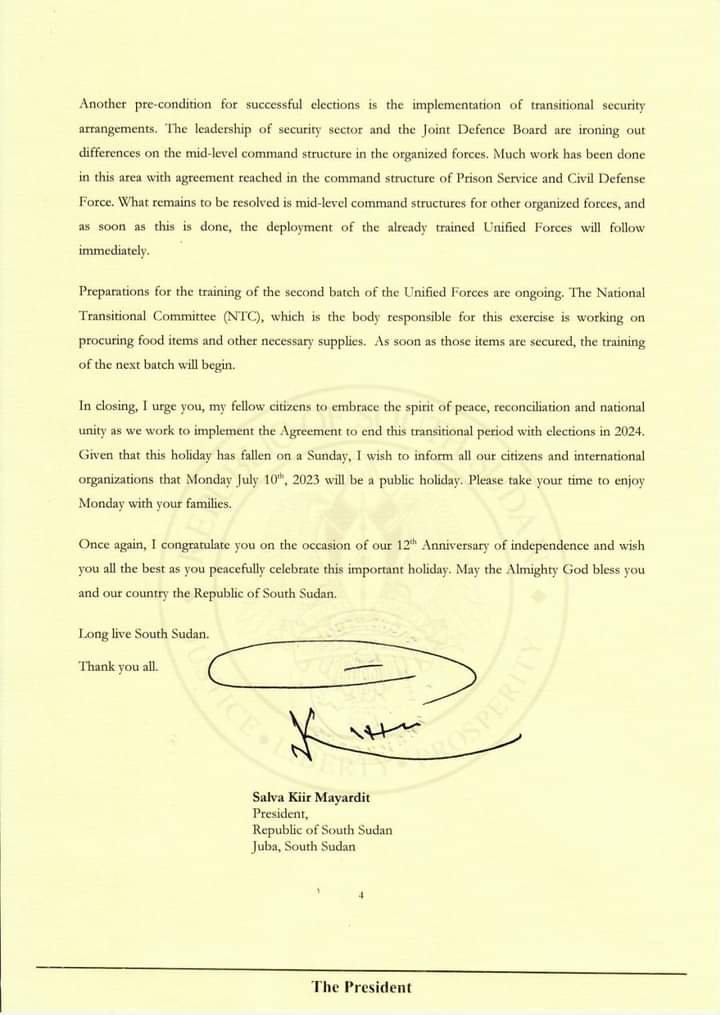 Another pre-condition for successful elections is the implementation of transitional security
arrangements. The leadership of security sector and the Joint Defence Board are ironing out
differences on the mid-level command structure in the organized forces. Much work has been done
in this area with agreement reached in the command structure of Prison Service and Civil Defense
Force. What remains to be resolved is mid-level command structures for other organized forces, and
as soon as this is done, the deployment of the already trained Unified Forces will follow
immediately.
Preparations for the training of the second batch of the Unified Forces are ongoing. The National
Transitional Committee (NTC), which is the body responsible for this exercise is working on
procuring food items and other necessary supplies. As soon as those items are secured, the training
of the next batch will begin.
In closing, I urge you, my fellow citizens to embrace the spirit of peace, reconciliation and national
unity as we work to implement the Agreement to end this transitional period with elections in 2024.
Given that this holiday has fallen on a Sunday, I wish to inform all our citizens and international
organizations that Monday July 10th, 2023 will be a public holiday. Please take your time to enjoy
Monday with your families.
Once again, I congratulate you on the occasion of our 12th Anniversary of independence and wish
you all the best as you peacefully celebrate this important holiday. May the Almighty God bless you
and our country the Republic of South Sudan.
Long live South Sudan.
Thank you all.
Salva Kiir Mayardit
President,
Republic of South Sudan
Juba, South Sudan
4
The President